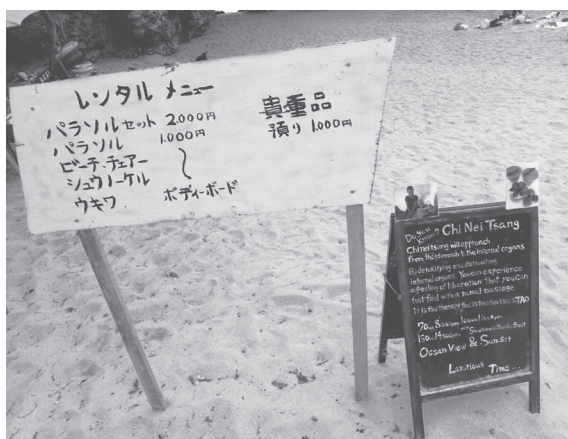 レンタル メニュー
パラソルセット 2.000円
パラソル 1.000円
ビーチ.チェアー
シュウノーケル
ウキワ
ボディーボード
貴重品
預り 1.000円
Do you know? Chi Nei Tsang
Chi nei tsang will approach
from the stomach to the internal organs
By detoxifying and activating
internal organs. You can experience
a feeling of liberation that you can
not feel with a normal massage
It is the therapy that is transmitted to TAO
Ocean View & Sunset
Luxurious Time...